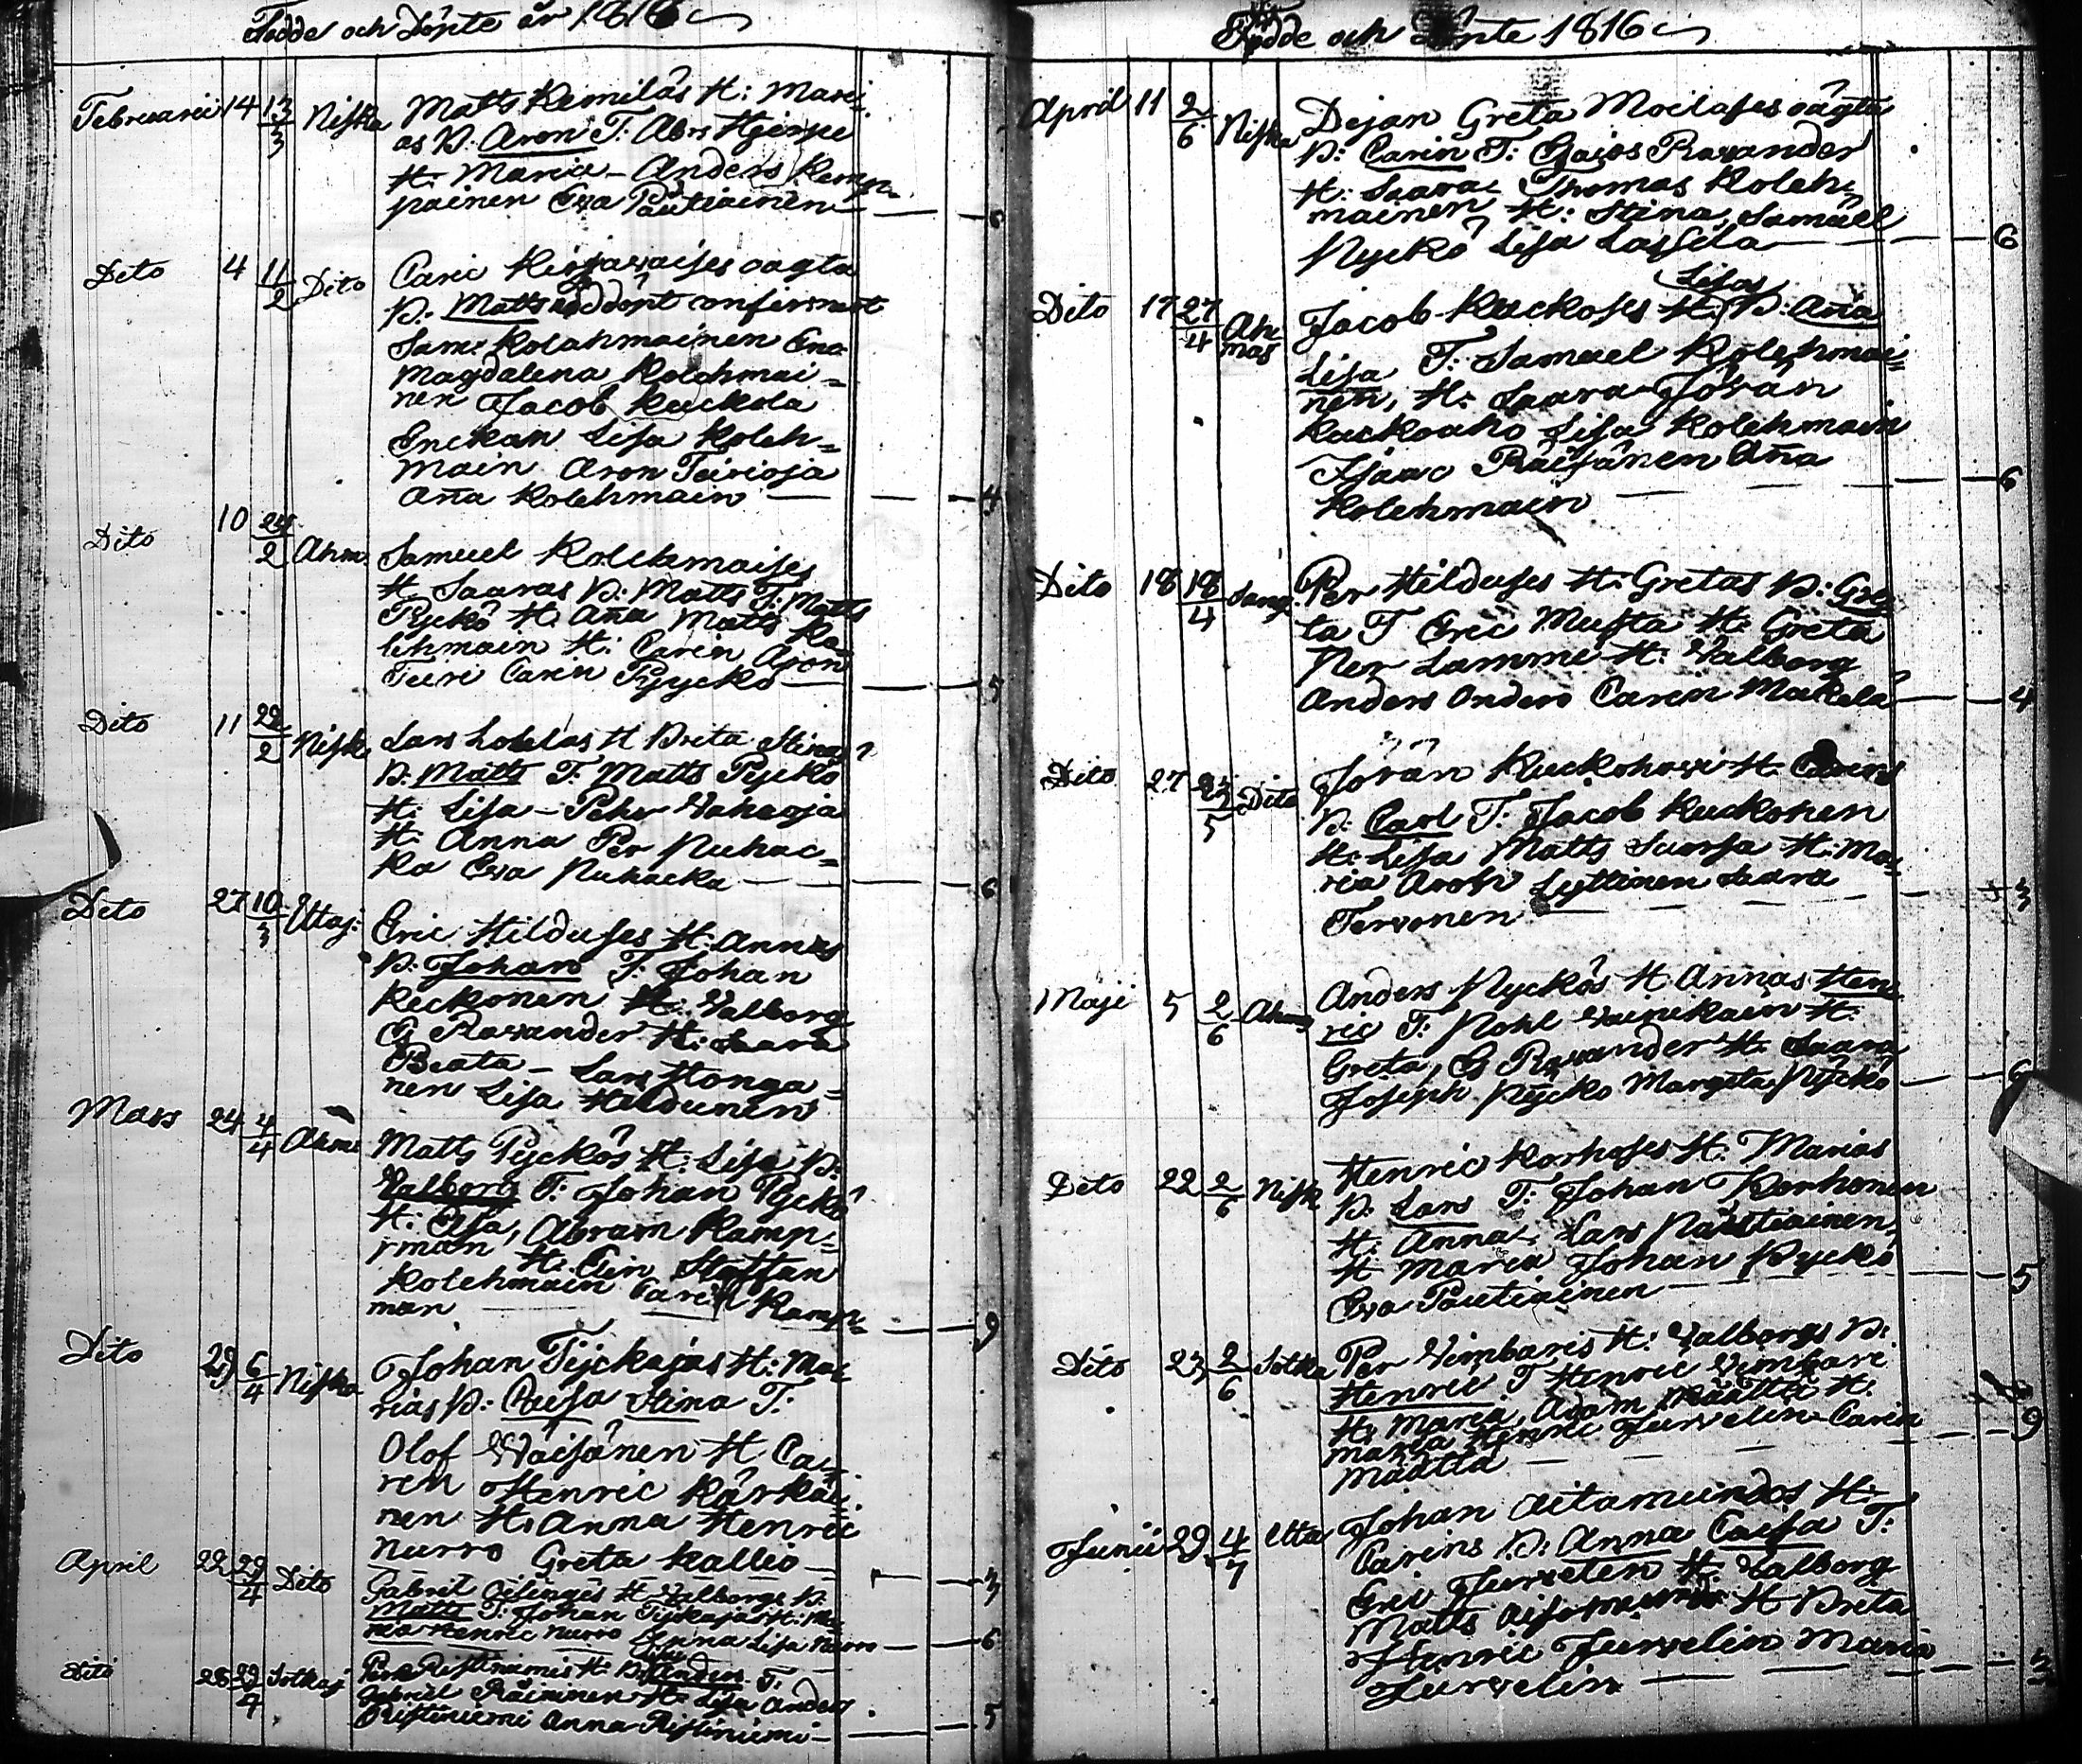 Födde och Döpte år 1816
Februarii 14 13/3 Niska Matts Kemiläs H: Mari-
as B. Aron T: Abr: Hjerpe
H: Maria - Anders Kemp-
painen Eva Pautiainen 6
Dito 4 11/2 Dito Caric oägta
B. Matts nöddöpt confirmat
Sam: Kolehmainen
Magdalena Kolehmai-
nen Jacob Kuckola
Lisa Koleh-
main Aron Teirioja
Aña Kolehmain 4
Dito 10 24/2 Ahm. Samuel Kolehmaises
H. Saaras B: Matts T: Matts
Pyckö H. Aña Matts Ko
lehmain H: Carin Aron
Teiri Carin Pyyckö 5
Dito 11 22/2 Nisk Lars H Brita Stinas
B: Matts T: Matts Pyckö
H: Lisa - Pehr Vahaoja
H: Anna Per Puhac-
ka Eva Puhacka 6
Dito 27 10/3 Uttaj: Eric Hilduses H: Annas
B: Johan T: Johan
Keckonen H: Valborg
G Ravander H: Saara
Beata - Lars Honga-
nen Lisa Hildunen
Mars 24 4/4 Ahm Matts Pyckös H: Lisa B:
Valborg T: Johan Pyckö
H: Abram Kamp-
man H. Staffan
Kolehmain Carin Kamp-
man 9
Dito 29 6/4 Niska Johan Tyckäjäs H: Ma
rias B: Caisa Stina T:
Olof Wäisänen H Ca-
rin Henric Kärkäi
nen H: Anna Henric
Nurro Greta Kallio 3
April 22 29/4 Dito Gabriel H Valborgs B:
Matts T: Johan Tyckäjäs H: Ma-
ria Henric Nurro Anna Lisa Nurro 6
Dito 28 29/4 Sotkaj Ristiniemis H: Lisas B: Anders T:
Gabriel Räisinen H: Lisa Anders
Ristiniemi Anna Ristiniemi 5
Födde och Döpte 1816
April 11 2/6 Niska Pejan Greta Moilases oägta
B: Carin T: Ravander
H: Saara Thomas Koleh-
mainen H: Stina, Samuel
Nyckö Lisa Lassila 6
Lisas
Dito 17 27/4 Ah Jacob Kuckoses H: B: Aña
mas
Lisa T: Samuel Kolehmai-
nen, H: Saara Jöran
Kuckoaho Lisa Kolehmain
Isaac Räisänen Aña
Kolehmain 6
Dito 18 18/4 Säng. Per Hilduses H: Gretas B: Gre
ta T Eric Musta H: Greta
Per Lamme H: Valborg
Anders Carin Makela 4
Dito 27 Dito Jöran H: Carins
B: Carl T: Jacob Kuckonen
H: Lisa Matts H: Ma-
ria Lyttinen Saara
Tervonen 3
Maji 5 2/6 Ahm Anders Nyckös H Annas Hen-
ric T: Pohl Vainikain H:
Greta, G Ravander H: Saara
Joseph Nyckö Margeta Nyckö
Dito 22 2/6 Nisk Henric Korhoses H: Marias
B: Lars T: Johan Korhonen
H: Anna Lars Pautiainen
H Maria Johan Nyckö
Eva Pautiainen 5
Dito 23 2/6 Sotka Per Vimbaris H: Valborgs B:
Henric T Henric Vimbari
H: Maria, Adam Määttä H:
Maria Henric Jurvelin Carin 9
Määttä
Junii 29 4/7 Utta Johan Aitamundos H:
Carins B: Anna Caisa T:
Eric Jurvelin H: Valborg
Matts H Brita
Henric Jurvelin Maria
Jurvelin 3